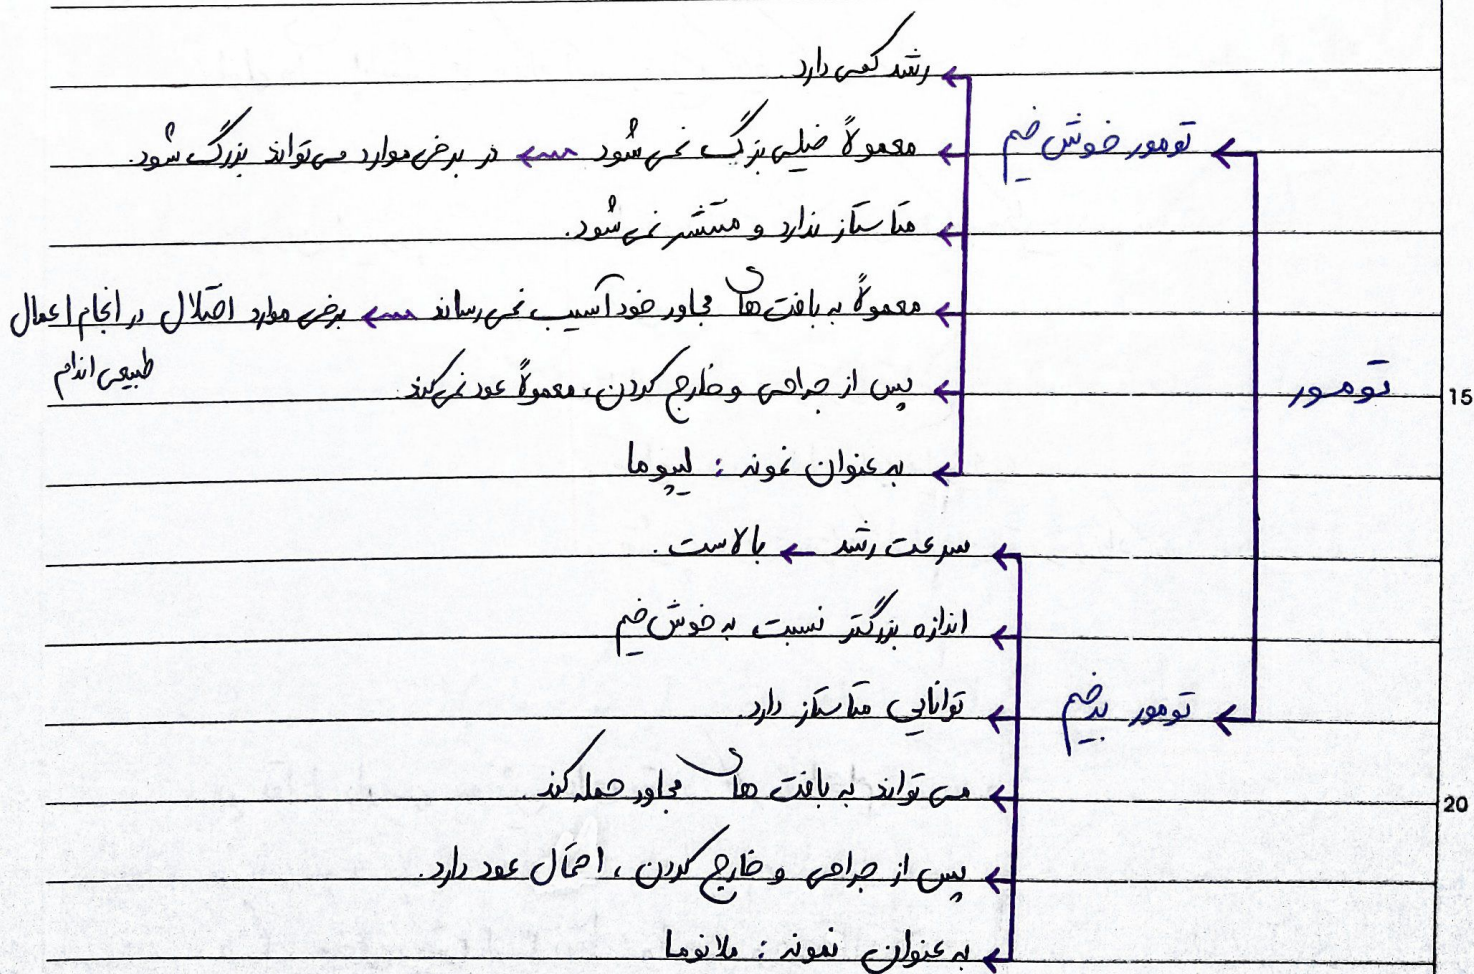 رشد کمی دارد.
تومور خوش خیم
معمولاً خیلی بزرگ نمی شود ← در برخی موارد می تواند بزرگ شود.
متاستاز ندارد و منتشر نمی شود.
معمولاً به بافت های مجاور خود آسیب نمی رساند ← برخی موارد اختلال در انجام اعمال
طبیعی اندام
تومور
پس از جراحی و خارج کردن، معمولاً عود نمی کند.
15
به عنوان نمونه : لیپوما
سرعت رشد ← بالاست.
اندازه بزرگتر نسبت به خوش خیم
تومور بدخیم
توانایی متاستاز دارد.
می تواند به بافت های مجاور حمله کند.
20
پس از جراحی و خارج کردن ، احتمال عود دارد.
به عنوان نمونه : ملانوما